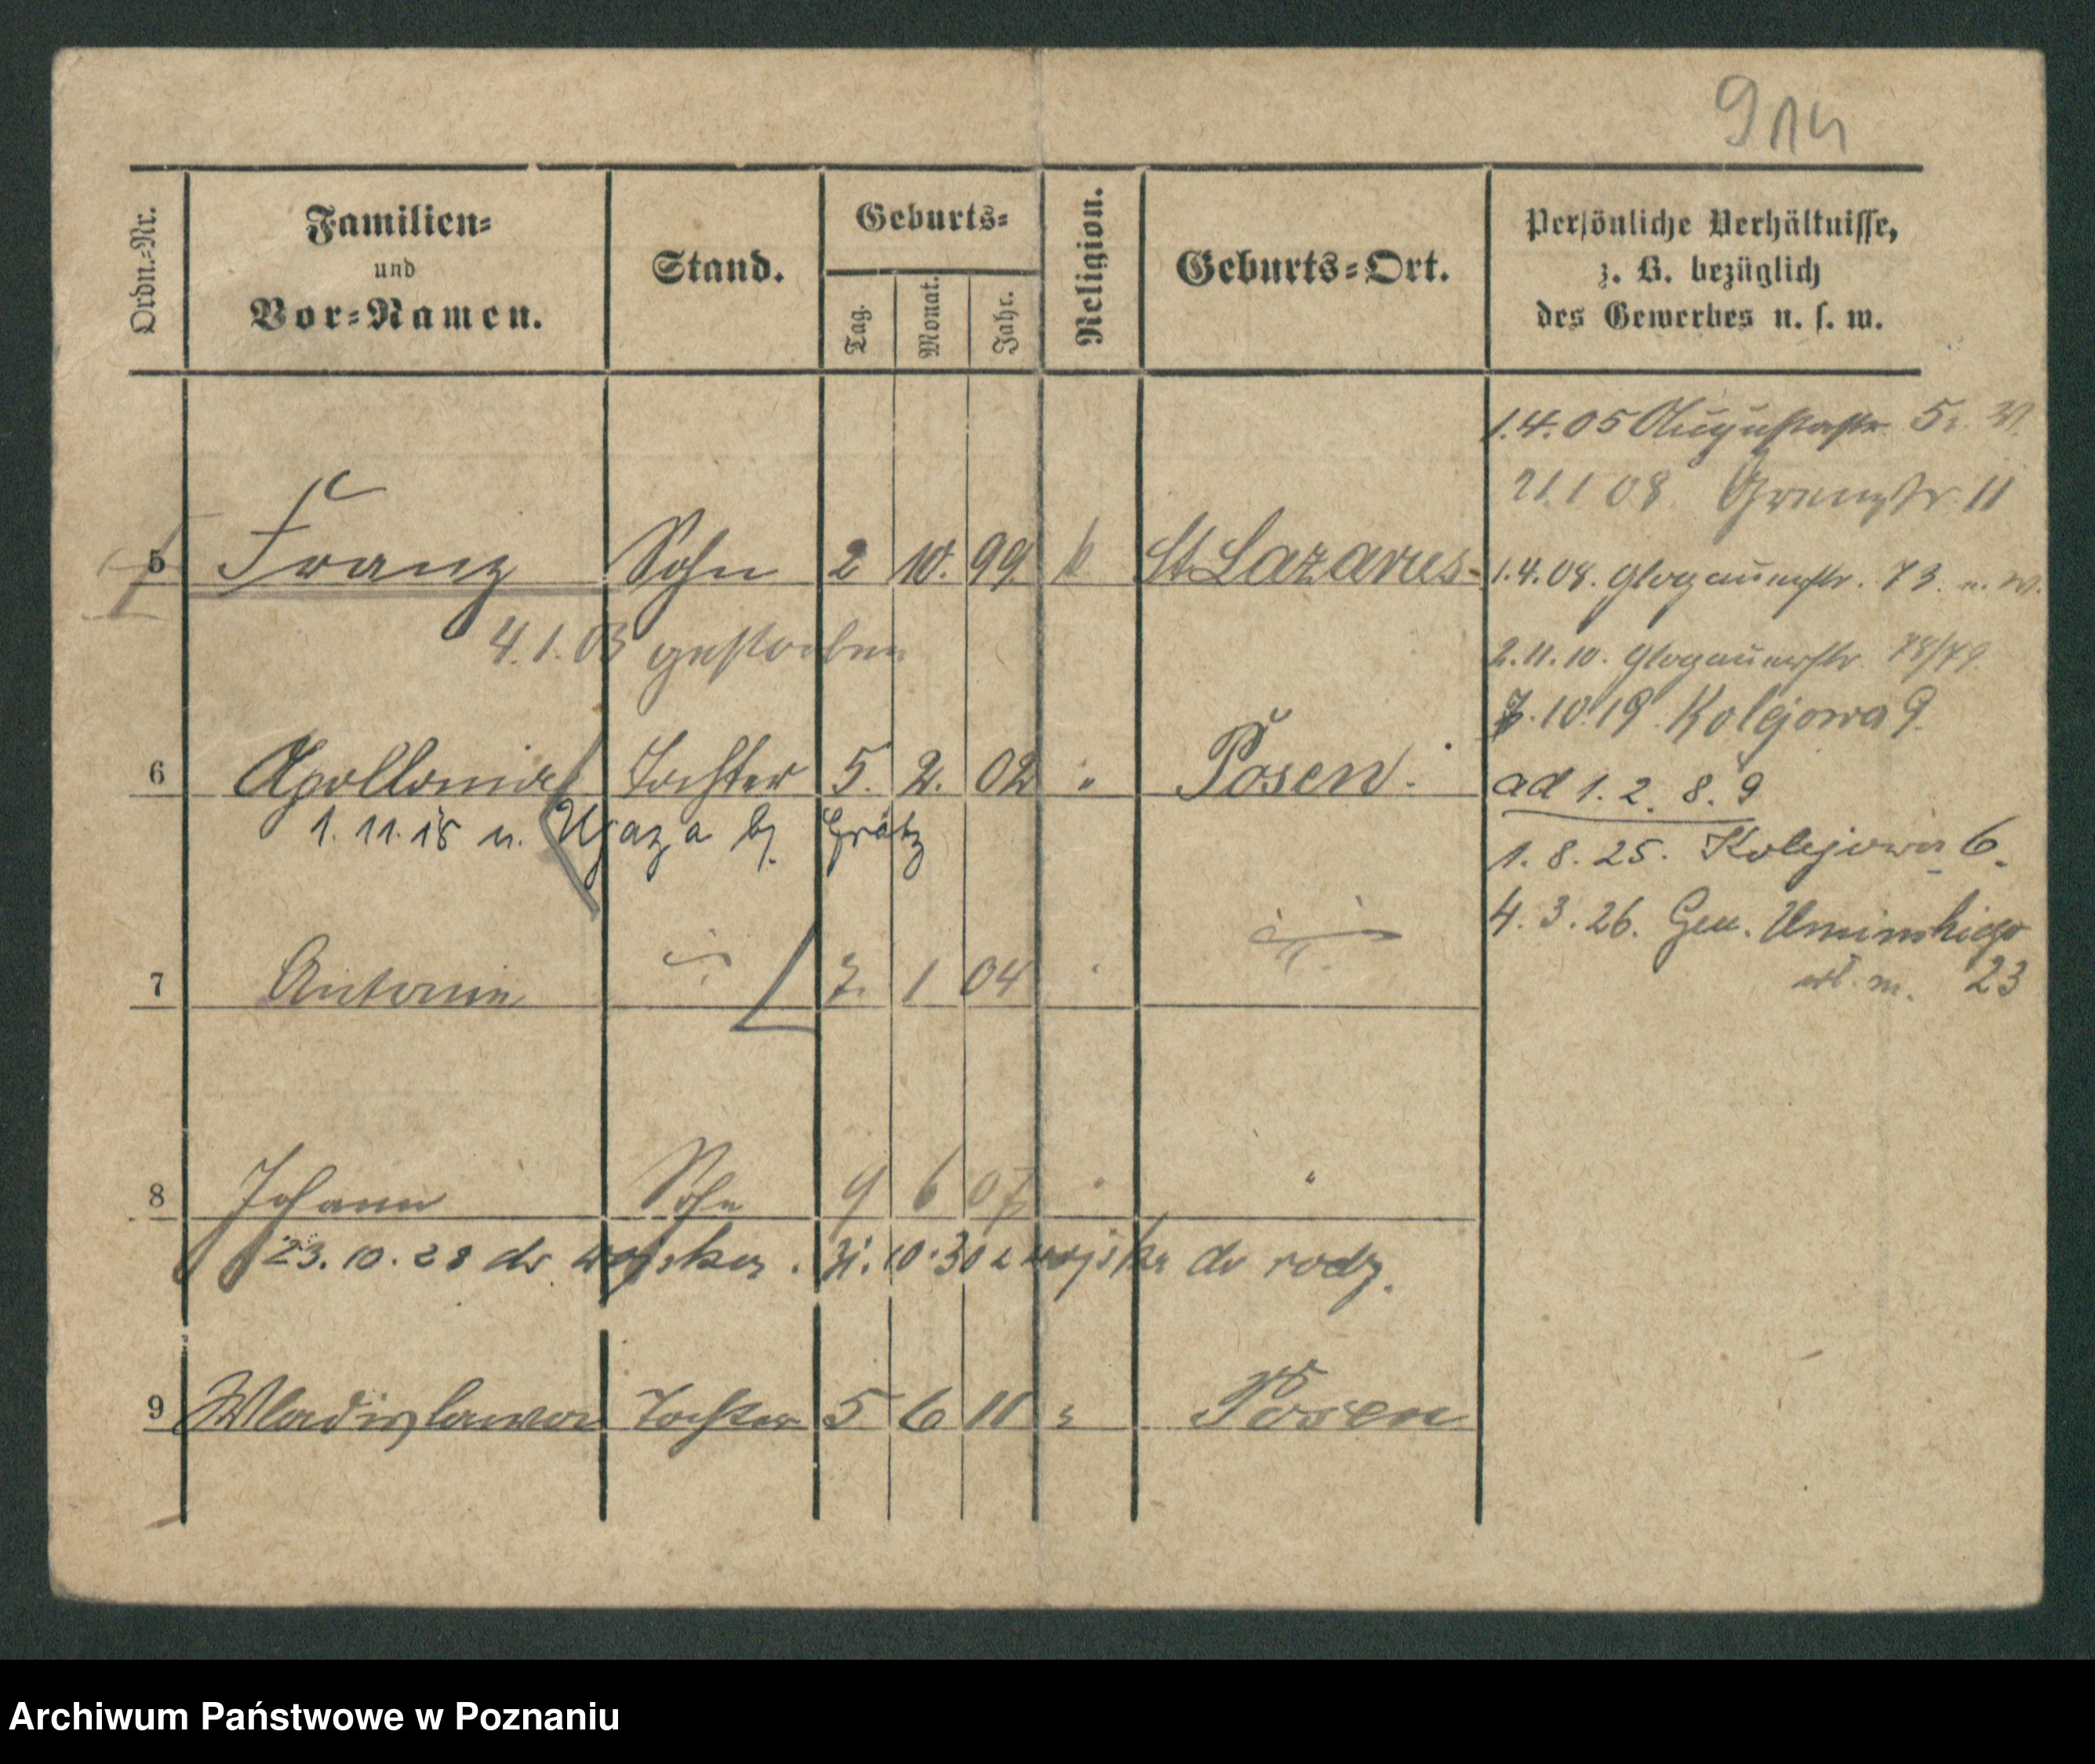 914
Ordn.-Nr.
Familien-
und
Vor-Namen.
Stand.
Geburts-
Tag.
Monat.
Jahr.
Religion.
Geburts-Ort.
Persönliche Verhältnisse,
z. B. bezüglich
des Gewerbes u. s. w.
1.4.05 Augustastr. 5
21.1 08 Grenzstr. 11
5 Franz Sohn 2 10. 99. k St. Lazarus
1.4.08. Glogauerstr. 73. n. W.
4.1.03 gestorben
2.11.10. Glogauerstr. 78/79.
7.10.19. Kolejowa 9.
6 Apollonia Tochter 5. 2. 02 " Posen.
ad 1. 2. 8. 9
1.11.18 n. Ujaza b. Grätz
1.8.25. Kolejowa 6.
4.3.26. Gen. Uminskiego
23
7 Antonie 7. 1 04
8 Johann Sohn 9 6 07 " "
23.10.28 do wojska. 31.10.30 z wojska do rodz.
9 Wladislawa Tochter 5 6 11 " Posen
Archiwum Państwowe w Poznaniu